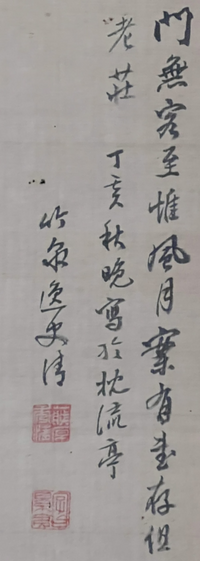 門無客至惟風月案有書存但
老莊 丁亥秋晚寫於枕流亭
竹泉逸史倩